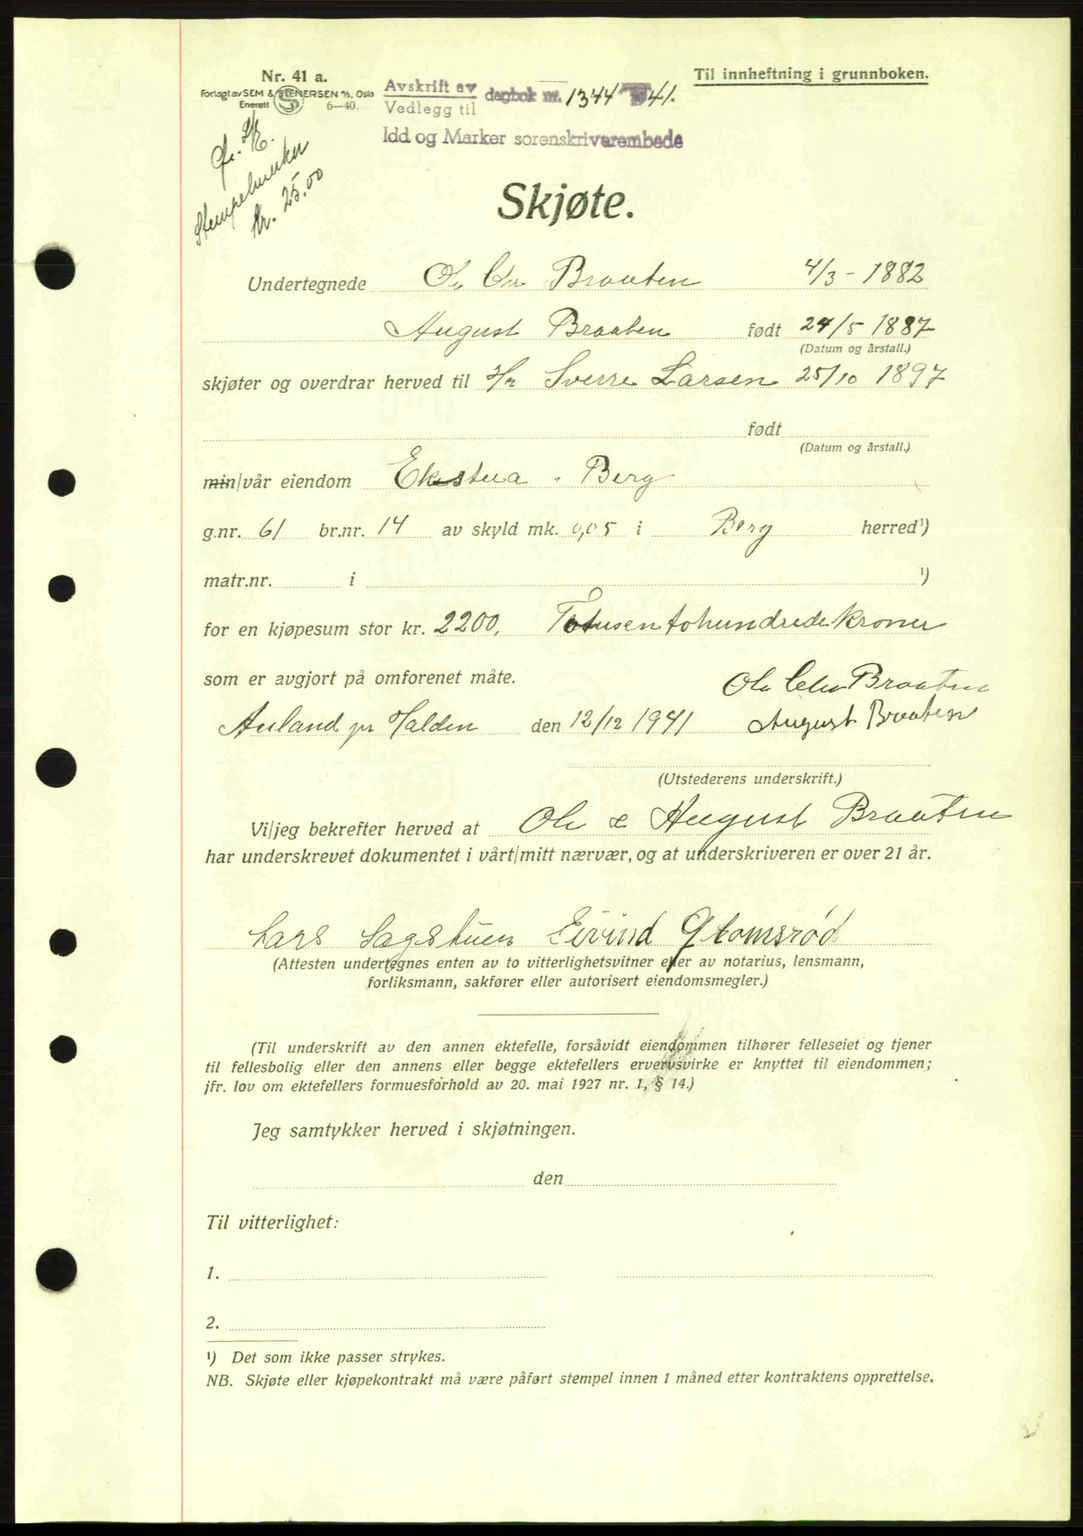 Nr. 41 a.
Forlagt av SEM & STENERSEN A/S, Oslo
Enerett 6—40.
Avskrift av
Vedlegg til
dagbok nr. 1344 1941.
Idd og Marker sorenskriverembede
Til innheftning i grunnboken.
Stempelmerker
kr. 25.00
Skjøte.
Undertegnede Braaten 4/3 - 1882
August Braaten født 24/5 1887
(Datum og årstall.)
skjøter og overdrar herved til Hr Sverre Larsen 25/10 1897
født
(Datum og årstall.)
min/vår eiendom Ekstua . Berg
g.nr. 61 br.nr. 14 av skyld mk. 0,05 i Berg herred¹)
matr.nr. i ¹)
for en kjøpesum stor kr. 2200, Totusentohundredekroner
som er avgjort på omforenet måte. Ole Chr Braaten
Auland pr Halden den 12/12 1941 August Braaten
(Utstederens underskrift.)
Vi/jeg bekrefter herved at Ole & August Braaten
har underskrevet dokumentet i vårt/mitt nærvær, og at underskriveren er over 21 år.
Lars Sagstuen Eivind Glomsrød
(Attesten undertegnes enten av to vitterlighetsvitner eller av notarius, lensmann,
forliksmann, sakfører eller autorisert eiendomsmegler.)
(Til underskrift av den annen ektefelle, forsåvidt eiendommen tilhører felleseiet og tjener
til fellesbolig eller den annens eller begge ektefellers ervervsvirke er knyttet til eiendommen;
jfr. lov om ektefellers formuesforhold av 20. mai 1927 nr. 1, § 14.)
Jeg samtykker herved i skjøtningen.
den
Til vitterlighet:
1.
2.
¹) Det som ikke passer strykes.
NB. Skjøte eller kjøpekontrakt må være påført stempel innen 1 måned etter kontraktens opprettelse.